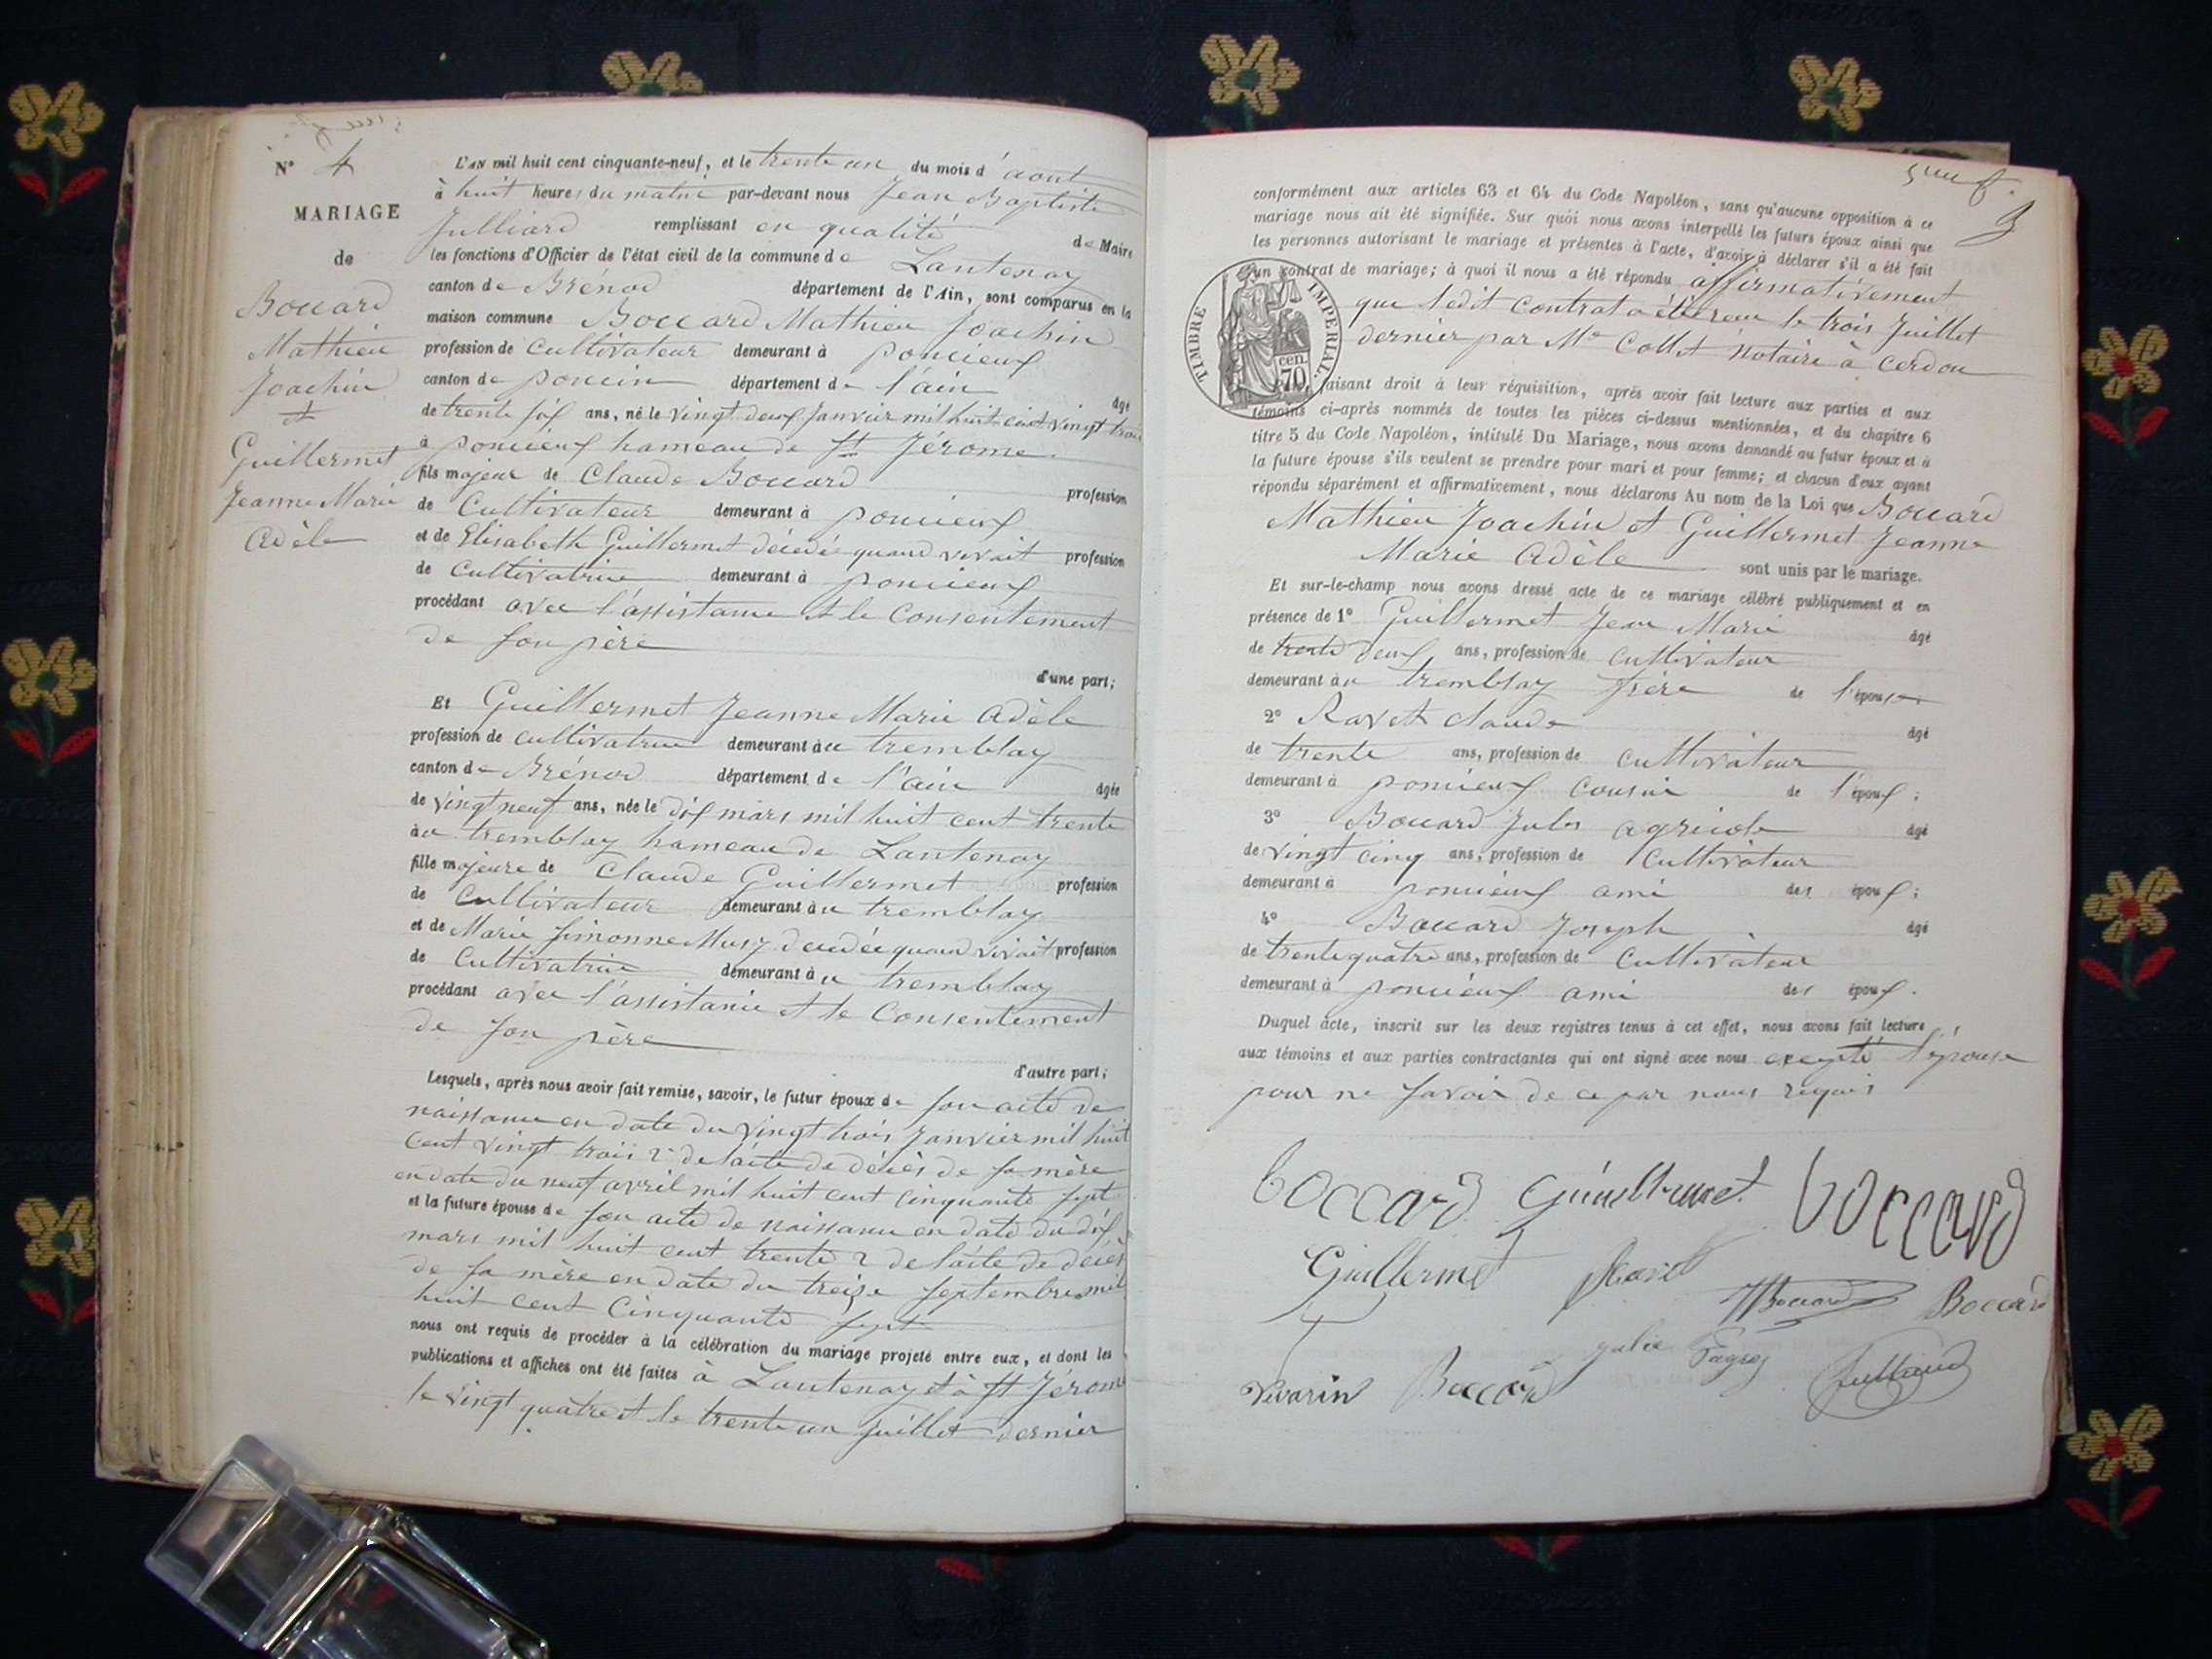 N° 4
MARIAGE
de
Boccard
Mathieu
Joachin
et
Guillermet
Jeanne Marie
Adèle
L'AN mil huit cent cinquante-neuf, et le trente un du mois d'aout
à huit heures du matin par-devant nous Jean Baptiste
Julliard remplissant en qualité de Maire
les fonctions d'Officier de l'état civil de la commune de Lantenay
canton de Brénod département de l'Ain, sont comparus en la
maison commune Boccard Mathieu Joachin
profession de cultivateur demeurant à poncieux
canton de poncin département de l'ain âgé
de trente six ans, né le vingt deux Janvier mil huit cent vingt trois
à poncieux hameau de St Jérome.
fils majeur de Claude Boccard profession
de Cultivateur demeurant à poncieux
et de Elisabeth Guillermet décédée quand vivait profession
de cultivatrice demeurant à poncieux
procédant avec l'assistance et le consentement
de son père
d'une part;
Et Guillermet Jeanne Marie Adèle
profession de cultivatrice demeurant au tremblay
canton de Brénod département de l'ain âgée
de vingt neuf ans, née le dix mars mil huit cent trente
au tremblay hameau de Lantenay
fille majeure de Claude Guillermet profession
de Cultivateur demeurant au tremblay
et de Marie Simonne Musy décédée quand vivait profession
de Cultivatrice demeurant au tremblay
procédant avec l'assistance et le Consentement
de son père
d'autre part;
Lesquels, après nous avoir fait remise, savoir, le futur époux de son acte de
naissance en date du vingt trois Janvier mil huit
cent vingt trois 2° de l'acte de décès de sa mère
en date du neuf avril mil huit cent cinquante sept
et la future épouse de son acte de naissance en date du dix
mars mil huit cent trente 2 de l'acte de décès
de sa mère en date du treize septembre mil
huit cent cinquante sept
nous ont requis de procéder à la célébration du mariage projeté entre eux, et dont les
publications et affiches ont été faites à Lantenay et à St Jérome
le vingt quatre et le trente un juillet dernier
conformément aux articles 63 et 64 du Code Napoléon, sans qu'aucune opposition à ce
mariage nous ait été signifiée. Sur quoi nous avons interpellé les futurs époux ainsi que
les personnes autorisant le mariage et présentes à l'acte, d'avoir à déclarer s'il a été fait
un contrat de mariage; à quoi il nous a été répondu affirmativement
que ledit contrat a été reçu le trois Juillet
dernier par Me Collet notaire à Cerdon
TIMBRE IMPERIAL.
70 cen.
faisant droit à leur réquisition, après avoir fait lecture aux parties et aux
témoins ci-après nommés de toutes les pièces ci-dessus mentionnées, et du chapitre 6
titre 5 du Code Napoléon, intitulé Du Mariage, nous avons demandé au futur époux et à
la future épouse s'ils veulent se prendre pour mari et pour femme; et chacun d'eux ayant
répondu séparément et affirmativement, nous déclarons Au nom de la Loi que Boccard
Mathieu Joachin et Guillermet Jeanne
Marie Adèle sont unis par le mariage.
Et sur-le-champ nous avons dressé acte de ce mariage célébré publiquement et en
présence de 1° Guillermet Jean Marie âgé
de trente deux ans, profession de cultivateur
demeurant au tremblay frère de l'épouse
2° Ravet Claude âgé
de trente ans, profession de cultivateur
demeurant à poncieux cousin de l'époux;
3° Boccard Jules agricole âgé
de vingt cinq ans, profession de cultivateur
demeurant à poncieux ami des époux;
4° Boccard Joseph âgé
de trente quatre ans, profession de cultivateur
demeurant à poncieux ami des époux.
Duquel acte, inscrit sur les deux registres tenus à cet effet, nous avons fait lecture
aux témoins et aux parties contractantes qui ont signé avec nous excepté l'épouse
pour ne savoir de ce par nous requis
boccard Guillermet boccard
Guillermet Ravet Boccard Boccard
Boccard julie Julliard